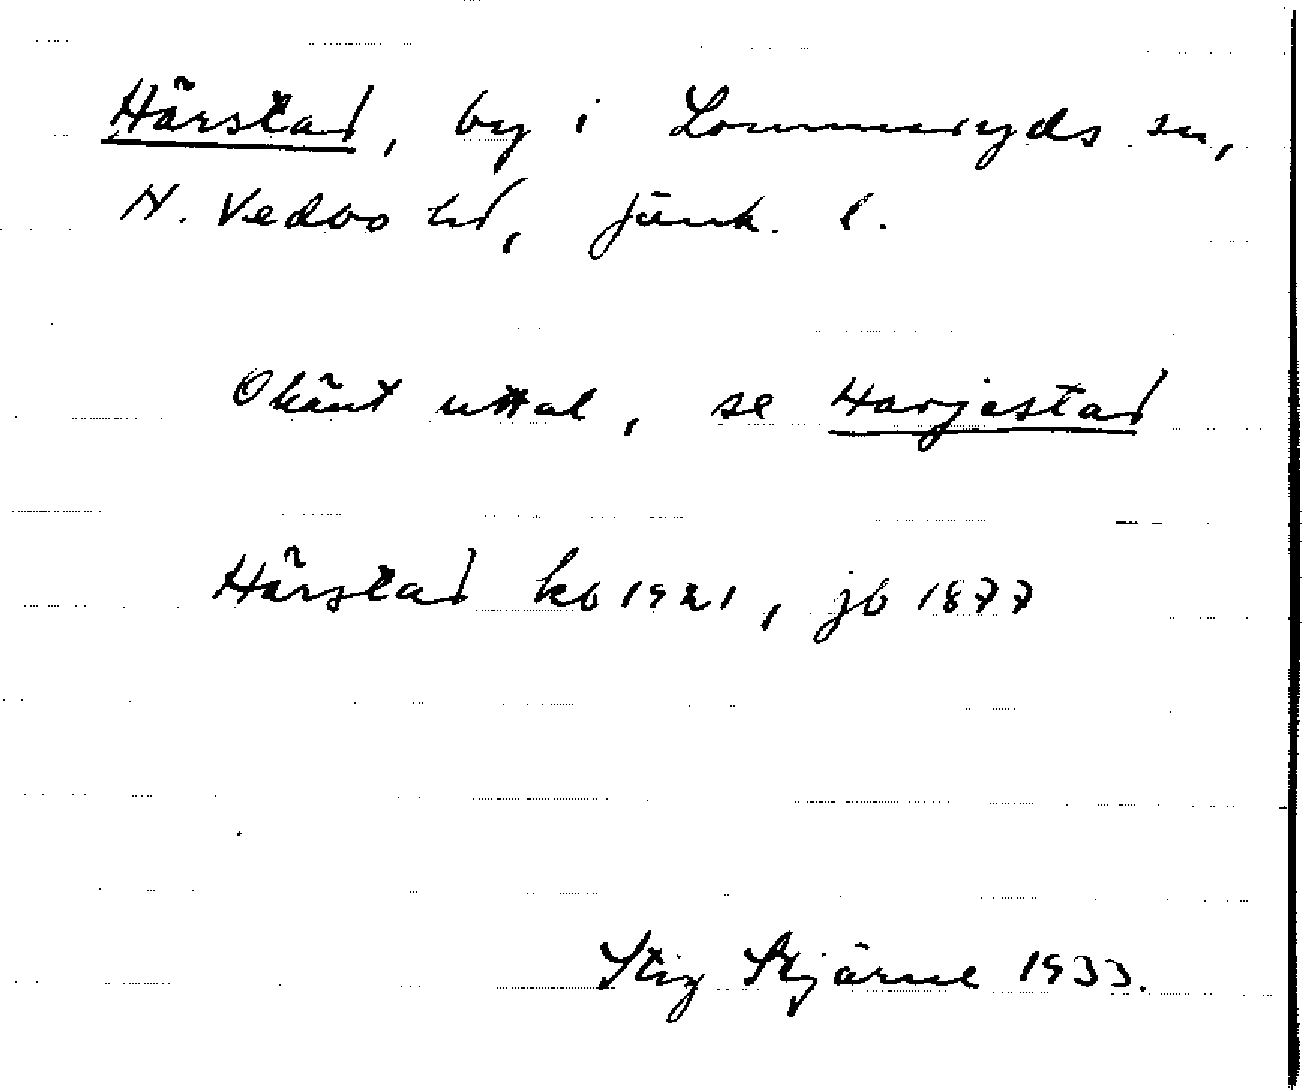 Hårstad, by i Lommaryds sn,
N. Vedbo hd, Jönk. l.
Okänt uttal, se Harjestad
Hårstad kb 1921, jb 1877
Stig Stjärne 1933.